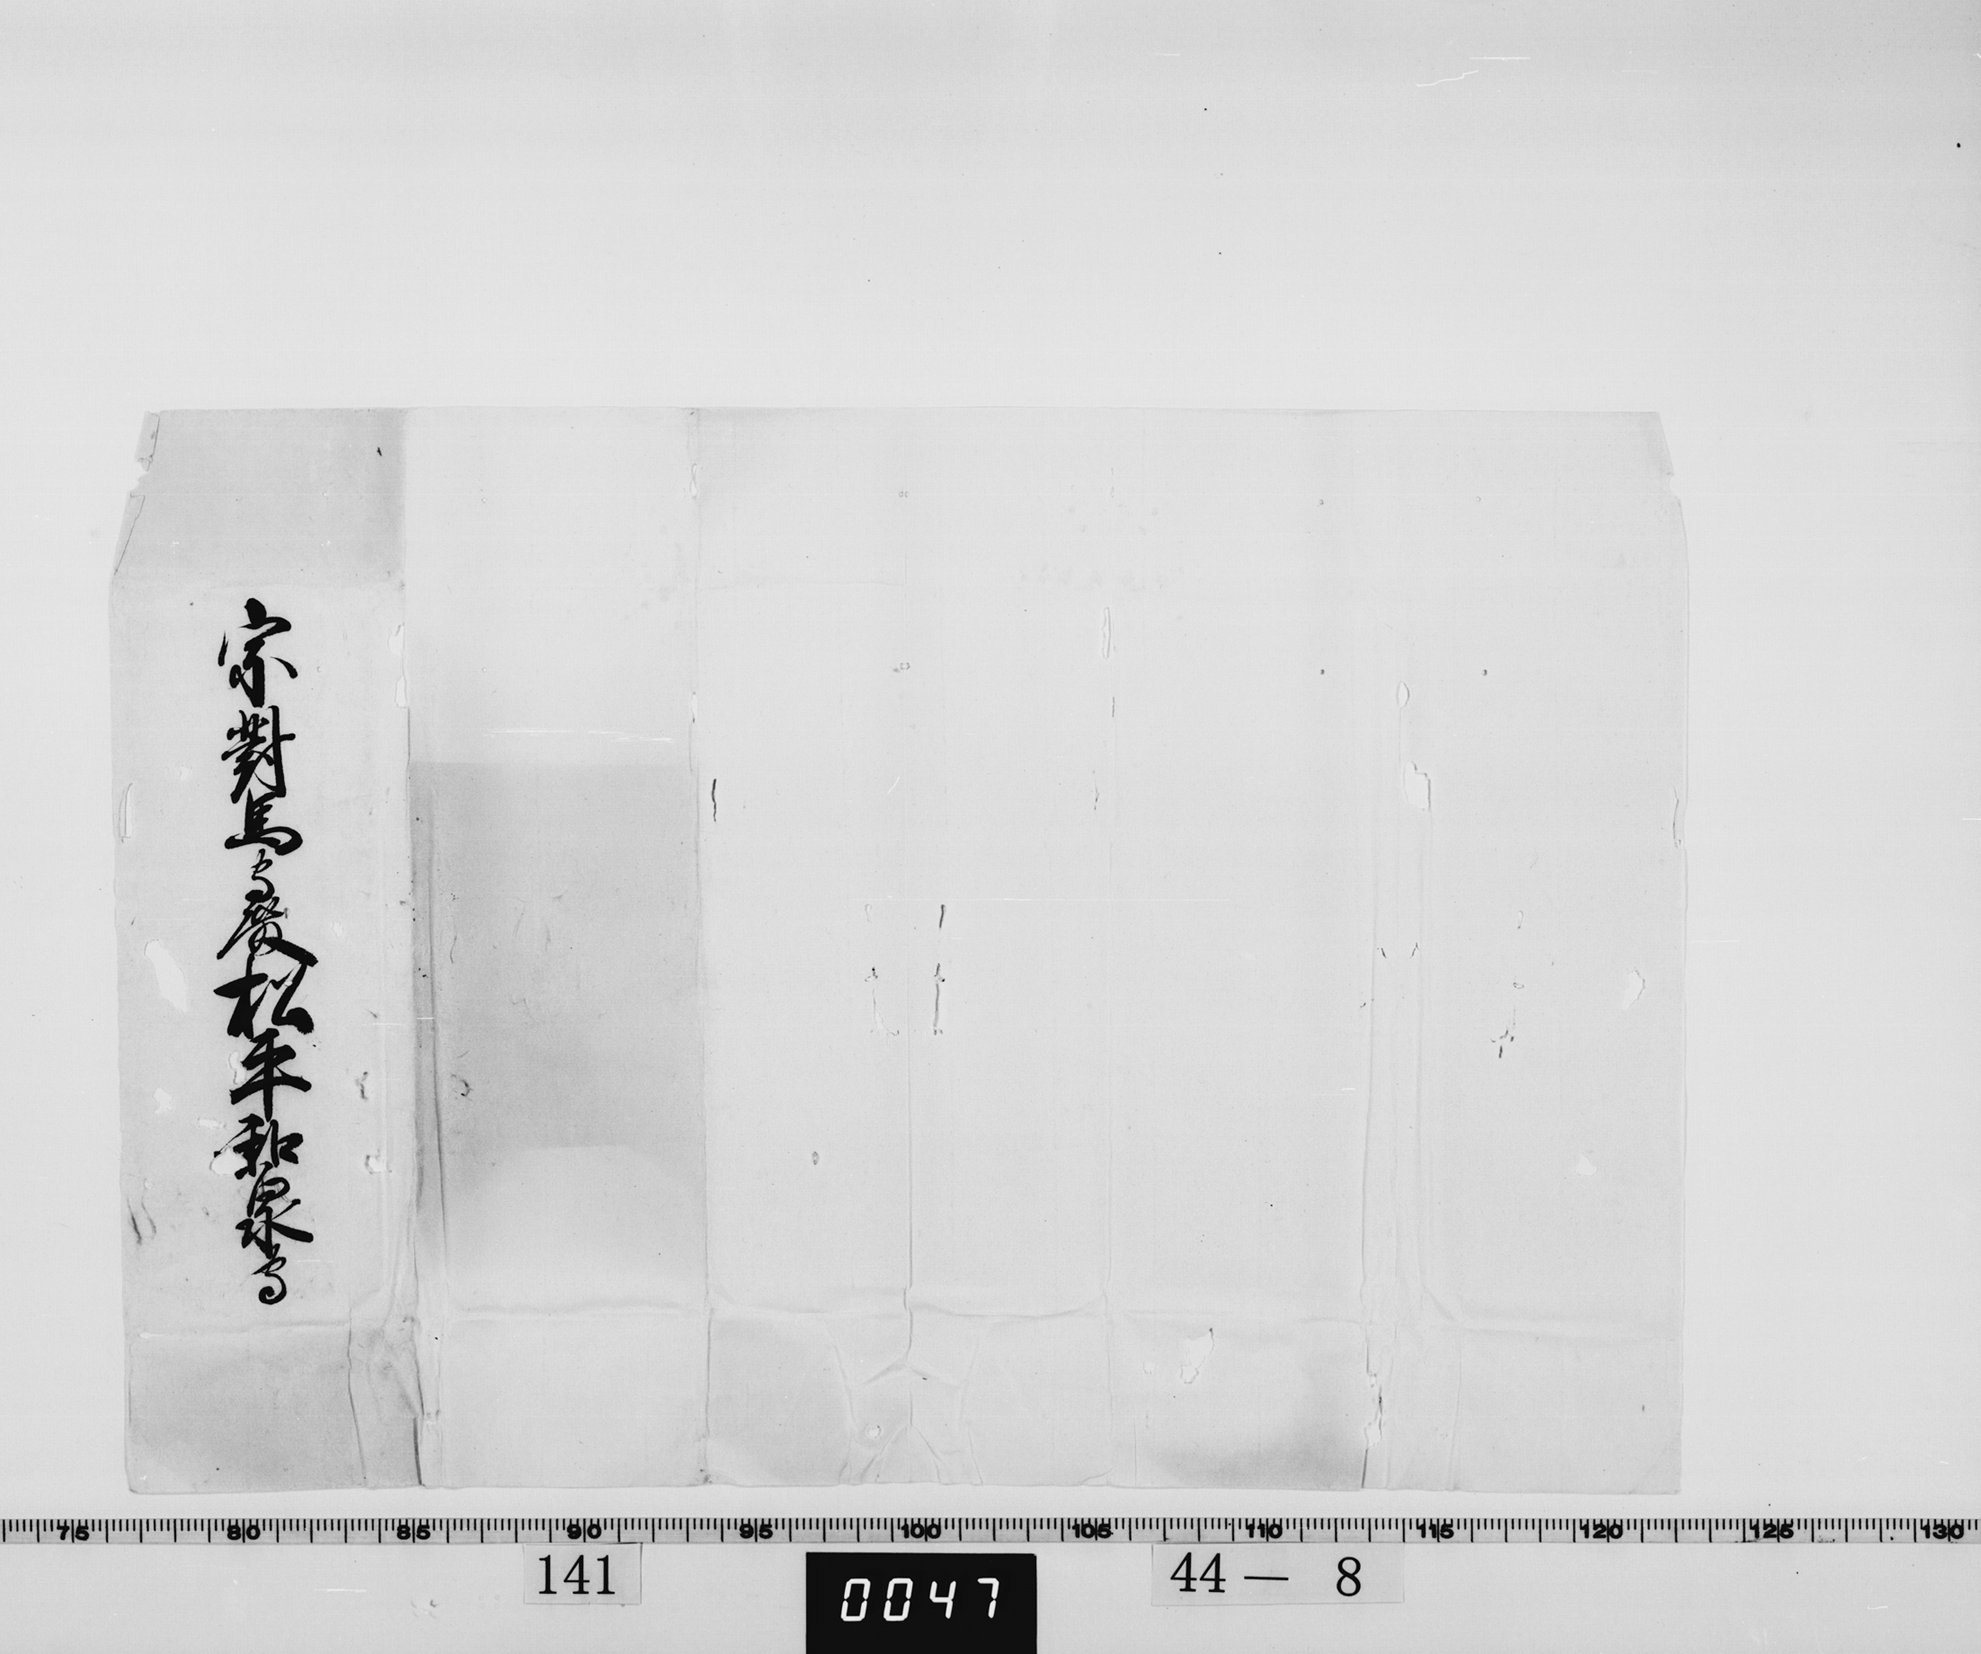 宗對馬守殿松平和泉守
75 80 85 90 95 100 105 110 115 120 125 130
141
0047
44 — 8